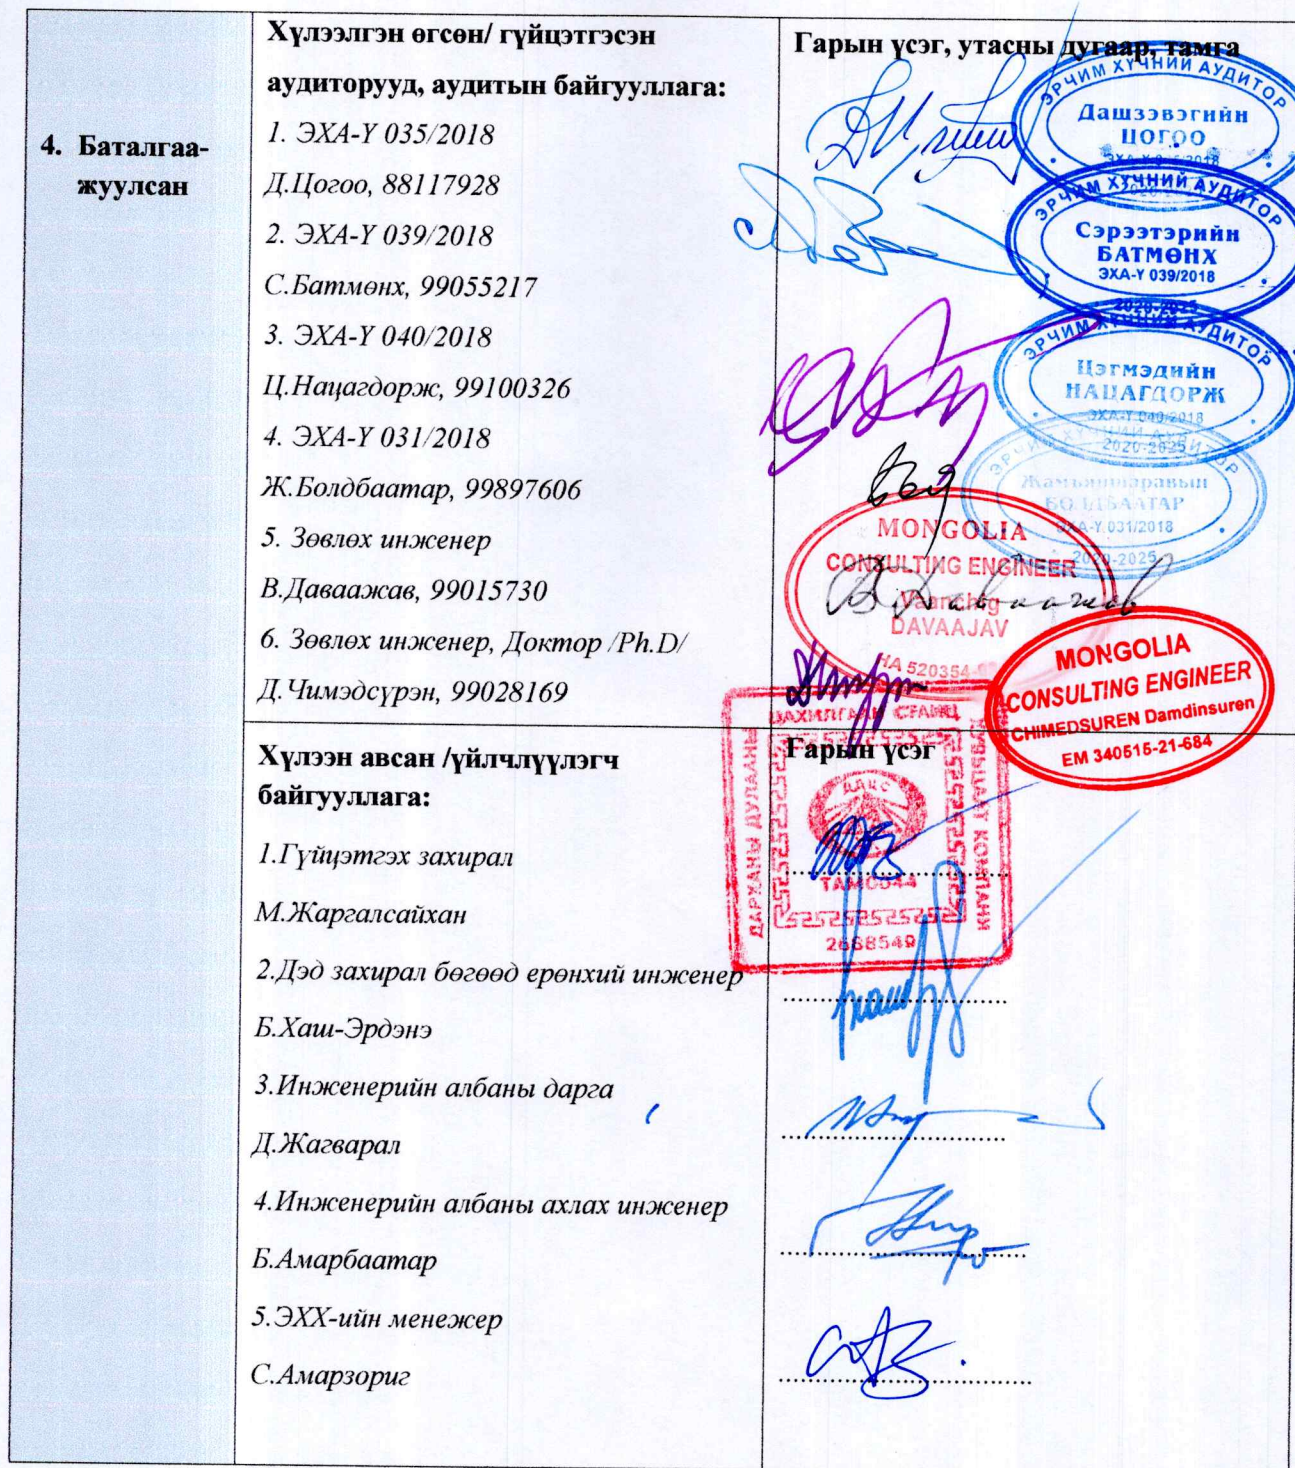 4. Баталгаа-
жуулсан
Хүлээлгэн өгсөн/ гүйцэтгэсэн
аудиторууд, аудитын байгууллага:
1. ЭХА-Ү 035/2018
Д.Цогоо, 88117928
2. ЭХА-Ү 039/2018
С.Батмөнх, 99055217
3. ЭХА-Ү 040/2018
Ц.Нацагдорж, 99100326
4. ЭХА-Ү 031/2018
Ж.Болдбаатар, 99897606
5. Зөвлөх инженер
В.Даваажав, 99015730
6. Зөвлөх инженер, Доктор /Ph.D/
Д.Чимэдсүрэн, 99028169
Гарын үсэг, утасны дугаар, тамга
ЭРЧИМ ХҮЧНИЙ АУДИТОР
Дашзэвэгийн
ЦОГОО
ЭРЧИМ ХҮЧНИЙ АУДИТОР
Сэрээтэрийн
БАТМӨНХ
ЭХА-Ү 039/2018
2020-2025
ЭРЧИМ ХҮЧНИЙ АУДИТОР
Цэгмэдийн
НАЦАГДОРЖ
ЭХА-Ү 040/2018
2020-2025
БОЛДБААТАР
ЭХА-Ү 031/2018
2020-2025
MONGOLIA
CONSULTING ENGINEER
Vaanchig
DAVAAJAV
HA 520354
MONGOLIA
CONSULTING ENGINEER
CHIMEDSUREN Damdinsuren
EM 340515-21-684
Хүлээн авсан /үйлчлүүлэгч
байгууллага:
1.Гүйцэтгэх захирал
М.Жаргалсайхан
2.Дэд захирал бөгөөд ерөнхий инженер
Б.Хаш-Эрдэнэ
3.Инженерийн албаны дарга
Д.Жагварал
4.Инженерийн албаны ахлах инженер
Б.Амарбаатар
5.ЭХХ-ийн менежер
С.Амарзориг
Гарын үсэг
ДАРХАНЫ ДУЛААНЫ
ЦАХИЛГААН СТАНЦ
ХУВЬЦААТ КОМПАНИ
ДДЦС
2668549